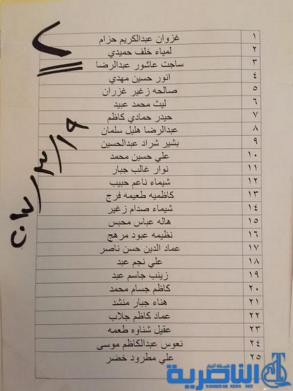 ١ غزوان عبدالكريم حزام
٢ لمياء خلف حميدي
٣ ساجت عاشور عبدالرضا
٤ انور حسين مهدي
٥ صالحه زغير غزران
٦ ليث محمد عبيد
٧ حيدر حمادي كاظم
٨ عبدالرضا هليل سلمان
٩ بشير شراد عبدالحسين
١٠ علي حسين محمد
١١ نوار غالب جبار
١٢ شيماء ناعم حبيب
١٣ كاظميه طعيمه فرج
١٤ شيماء صدام زغير
١٥ هاله عباس محيس
١٦ نظيمه عبود مرهج
١٧ عماد الدين حسن ناصر
١٨ علي نجم عبد
١٩ زينب جاسم عبد
٢٠ كاظم جسام محمد
٢١ هناء جبار منشد
٢٢ عماد كاظم جلاب
٢٣ عقيل شناوه طعمه
٢٤ نعوس عبدالكاظم موسى
٢٥ علي مطرود خضر
الناصرية